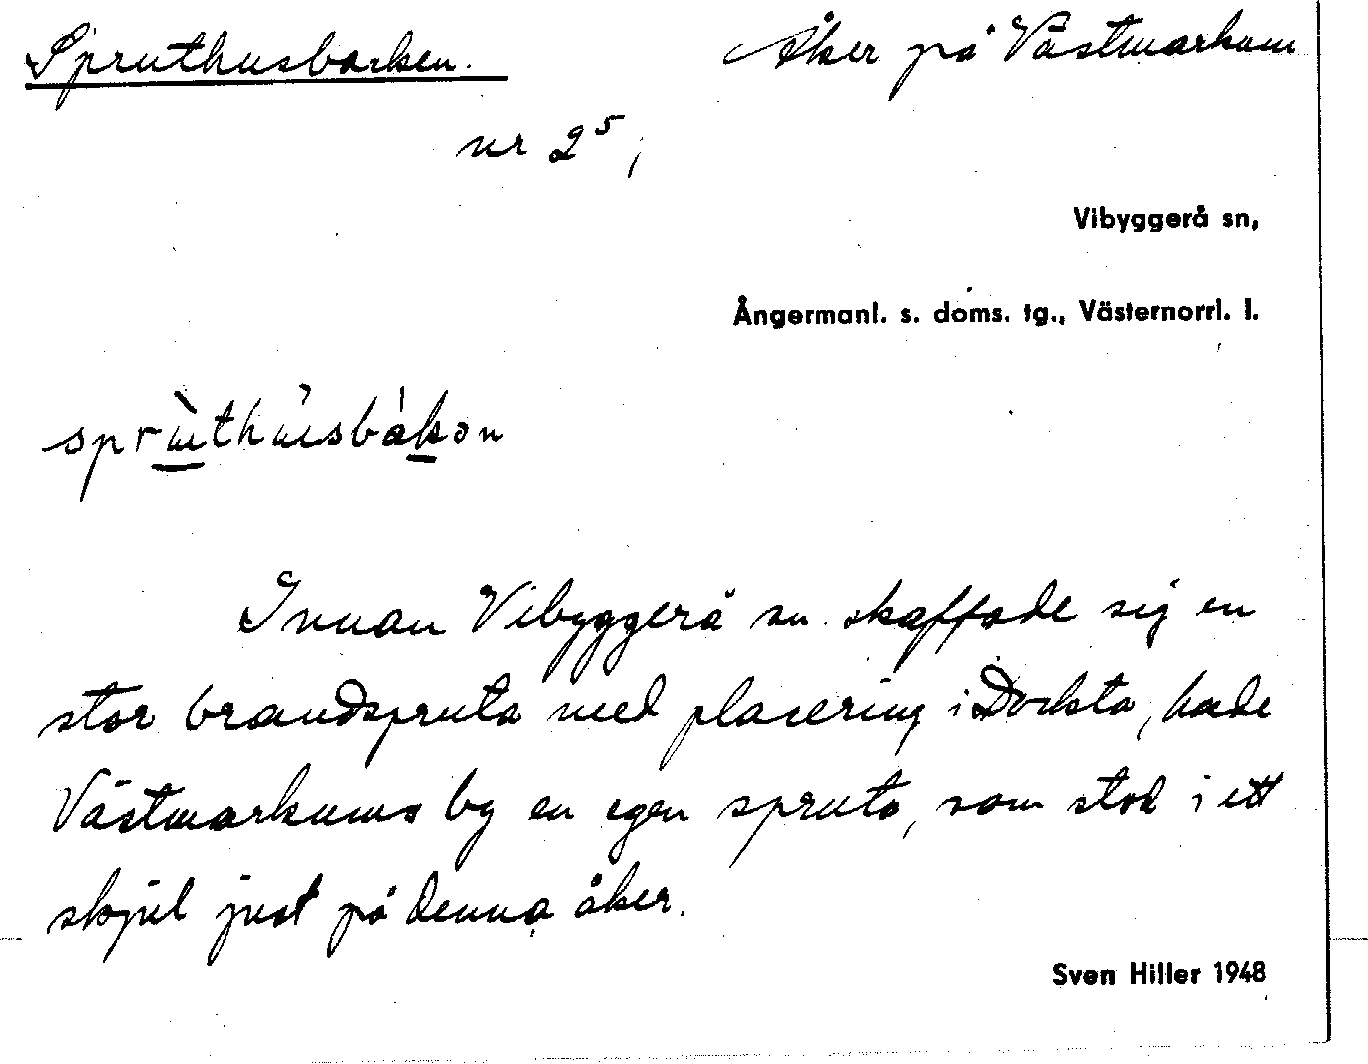 Spruthusbacken. Åker på Västmarkum
nr 2⁵,
Vibyggerå sn,
Ångermanl. s. doms. tg., Västernorrl. l.
Innan Vibyggerå sn skaffade sig en
stor brandspruta med placering i Docksta, hade
Västmarkums by en egen spruta, som stod i ett
skjul just på denna åker.
Sven Hiller 1948